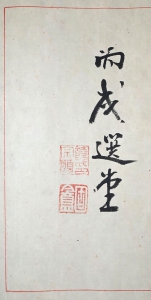 丙戌選堂